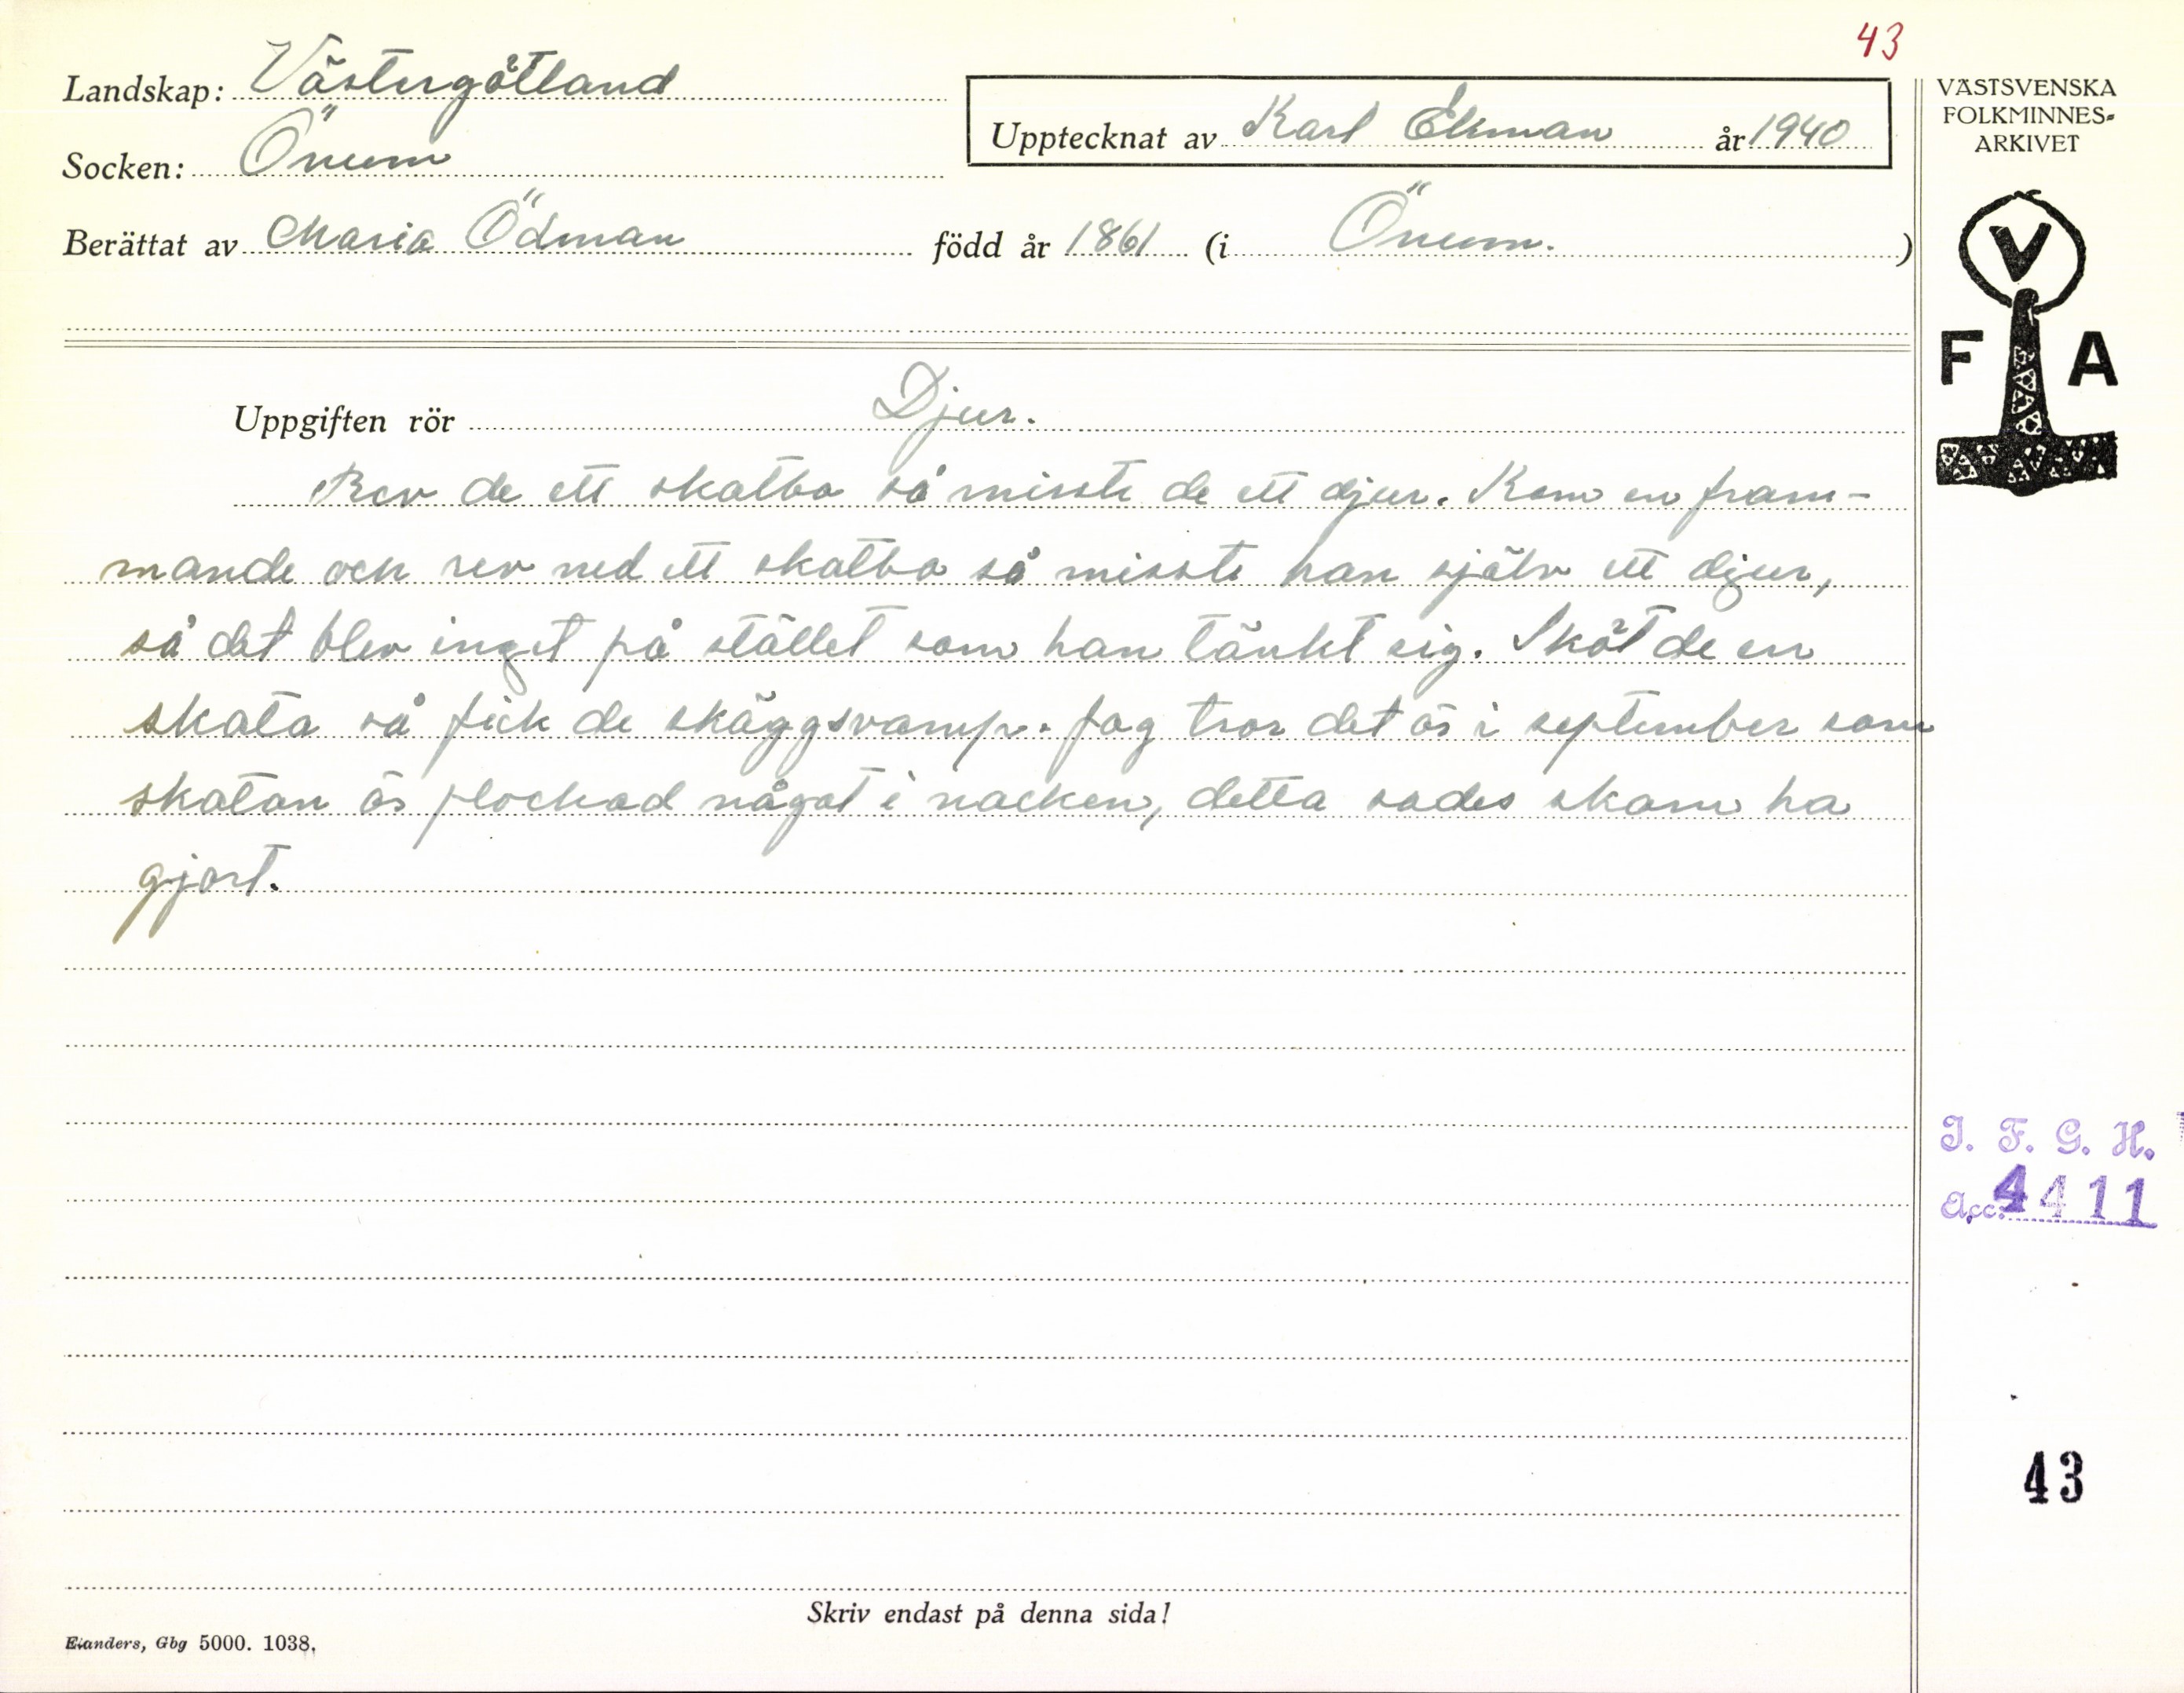 43
Landskap: Västergötland
VÄSTSVENSKA
FOLKMINNES-
ARKIVET
Upptecknat av Karl Ekman år 1940
Socken: Önum
Berättat av Maria Ödman född år 1861 (i Önum.)
V
F A
Uppgiften rör Djur.
Rev de ett skatbo så misste de ett djur. Kom en fram-
mande och rev ned ett skatbo så misste han själv ett djur,
så det blev inget på stället som han tänkt sig. Sköt de en
skata så fick de skäggsvamp. Jag tror det är i september som
skatan är plockad något i nacken, detta sades skam ha
gjort.
I. F. G. H.
Acc. 4411
43
Skriv endast på denna sida!
Elanders, Gbg 5000. 1038.